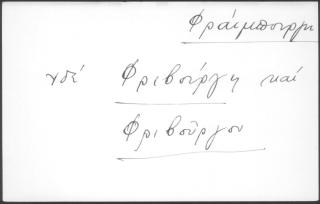 Φράϊμπουργκ
ιδέ Φριβούργη καί
Φριβοῦργου